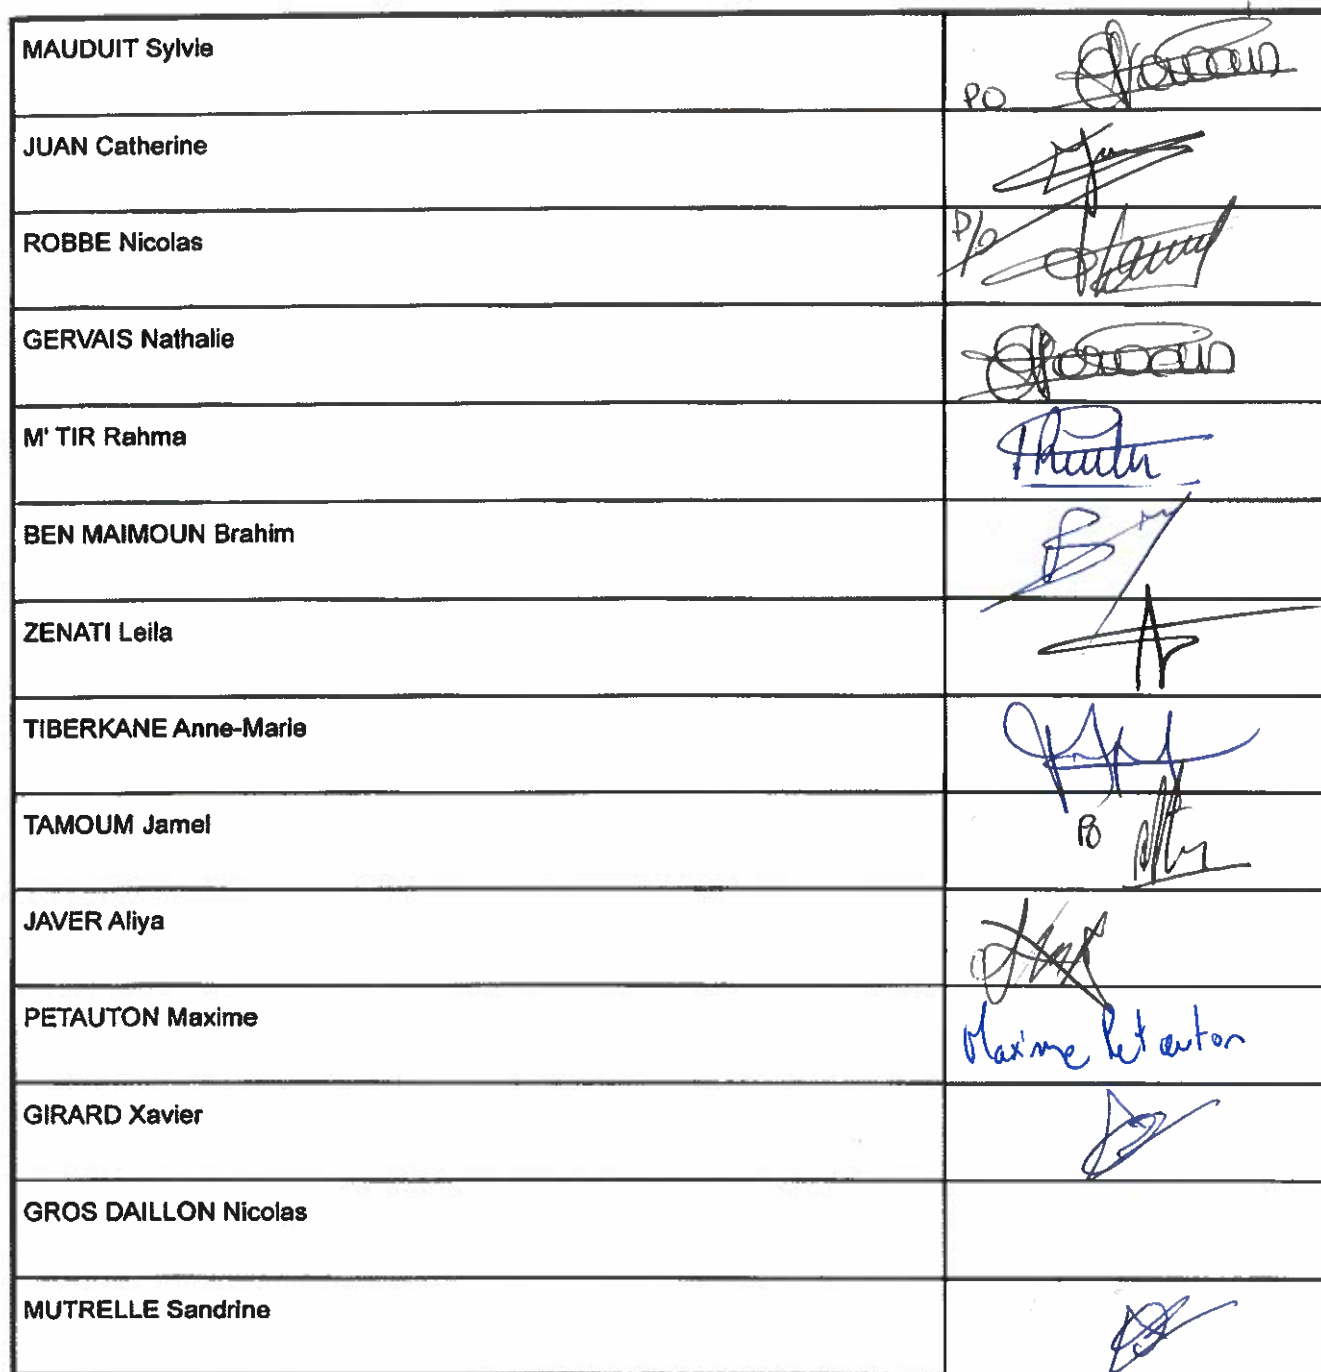 MAUDUIT Sylvie
PO
JUAN Catherine
ROBBE Nicolas
P/o
GERVAIS Nathalie
M' TIR Rahma
BEN MAIMOUN Brahim
ZENATI Leila
TIBERKANE Anne-Marie
TAMOUM Jamel
PO
JAVER Aliya
PETAUTON Maxime
Maxime Petauton
GIRARD Xavier
GROS DAILLON Nicolas
MUTRELLE Sandrine